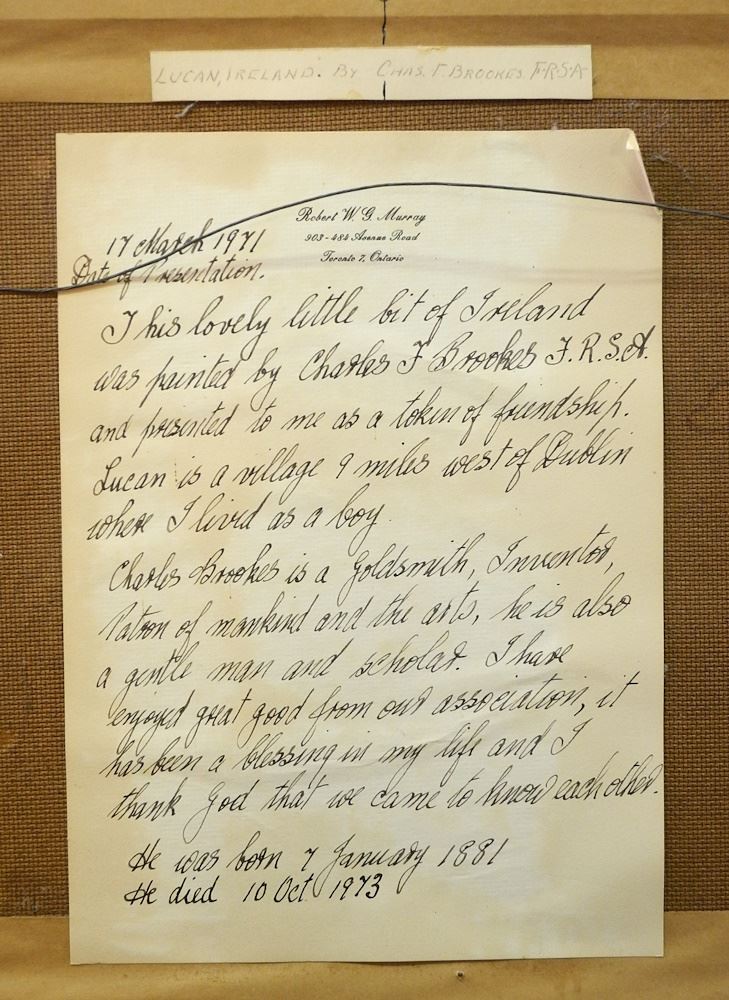 LUCAN, IRELAND. BY CHAS. F. BROOKES F.R.S.A
Robert W. G. Murray
903 - 484 Avenue Road
Toronto 7, Ontario
17 March 1971
Date of Presentation.
This lovely little bit of Ireland
was painted by Charles F Brookes F.R.S.A.
and presented to me as a token of friendship.
Lucan is a village 9 miles west of Dublin
where I lived as a boy.
Charles Brookes is a Goldsmith, Inventor,
Patron of mankind and the arts, he is also
a gentle man and scholar. I have
enjoyed great good from our association, it
has been a blessing in my life and I
thank God that we came to know each other.
He was born 7 January 1881
He died 10 Oct 1973